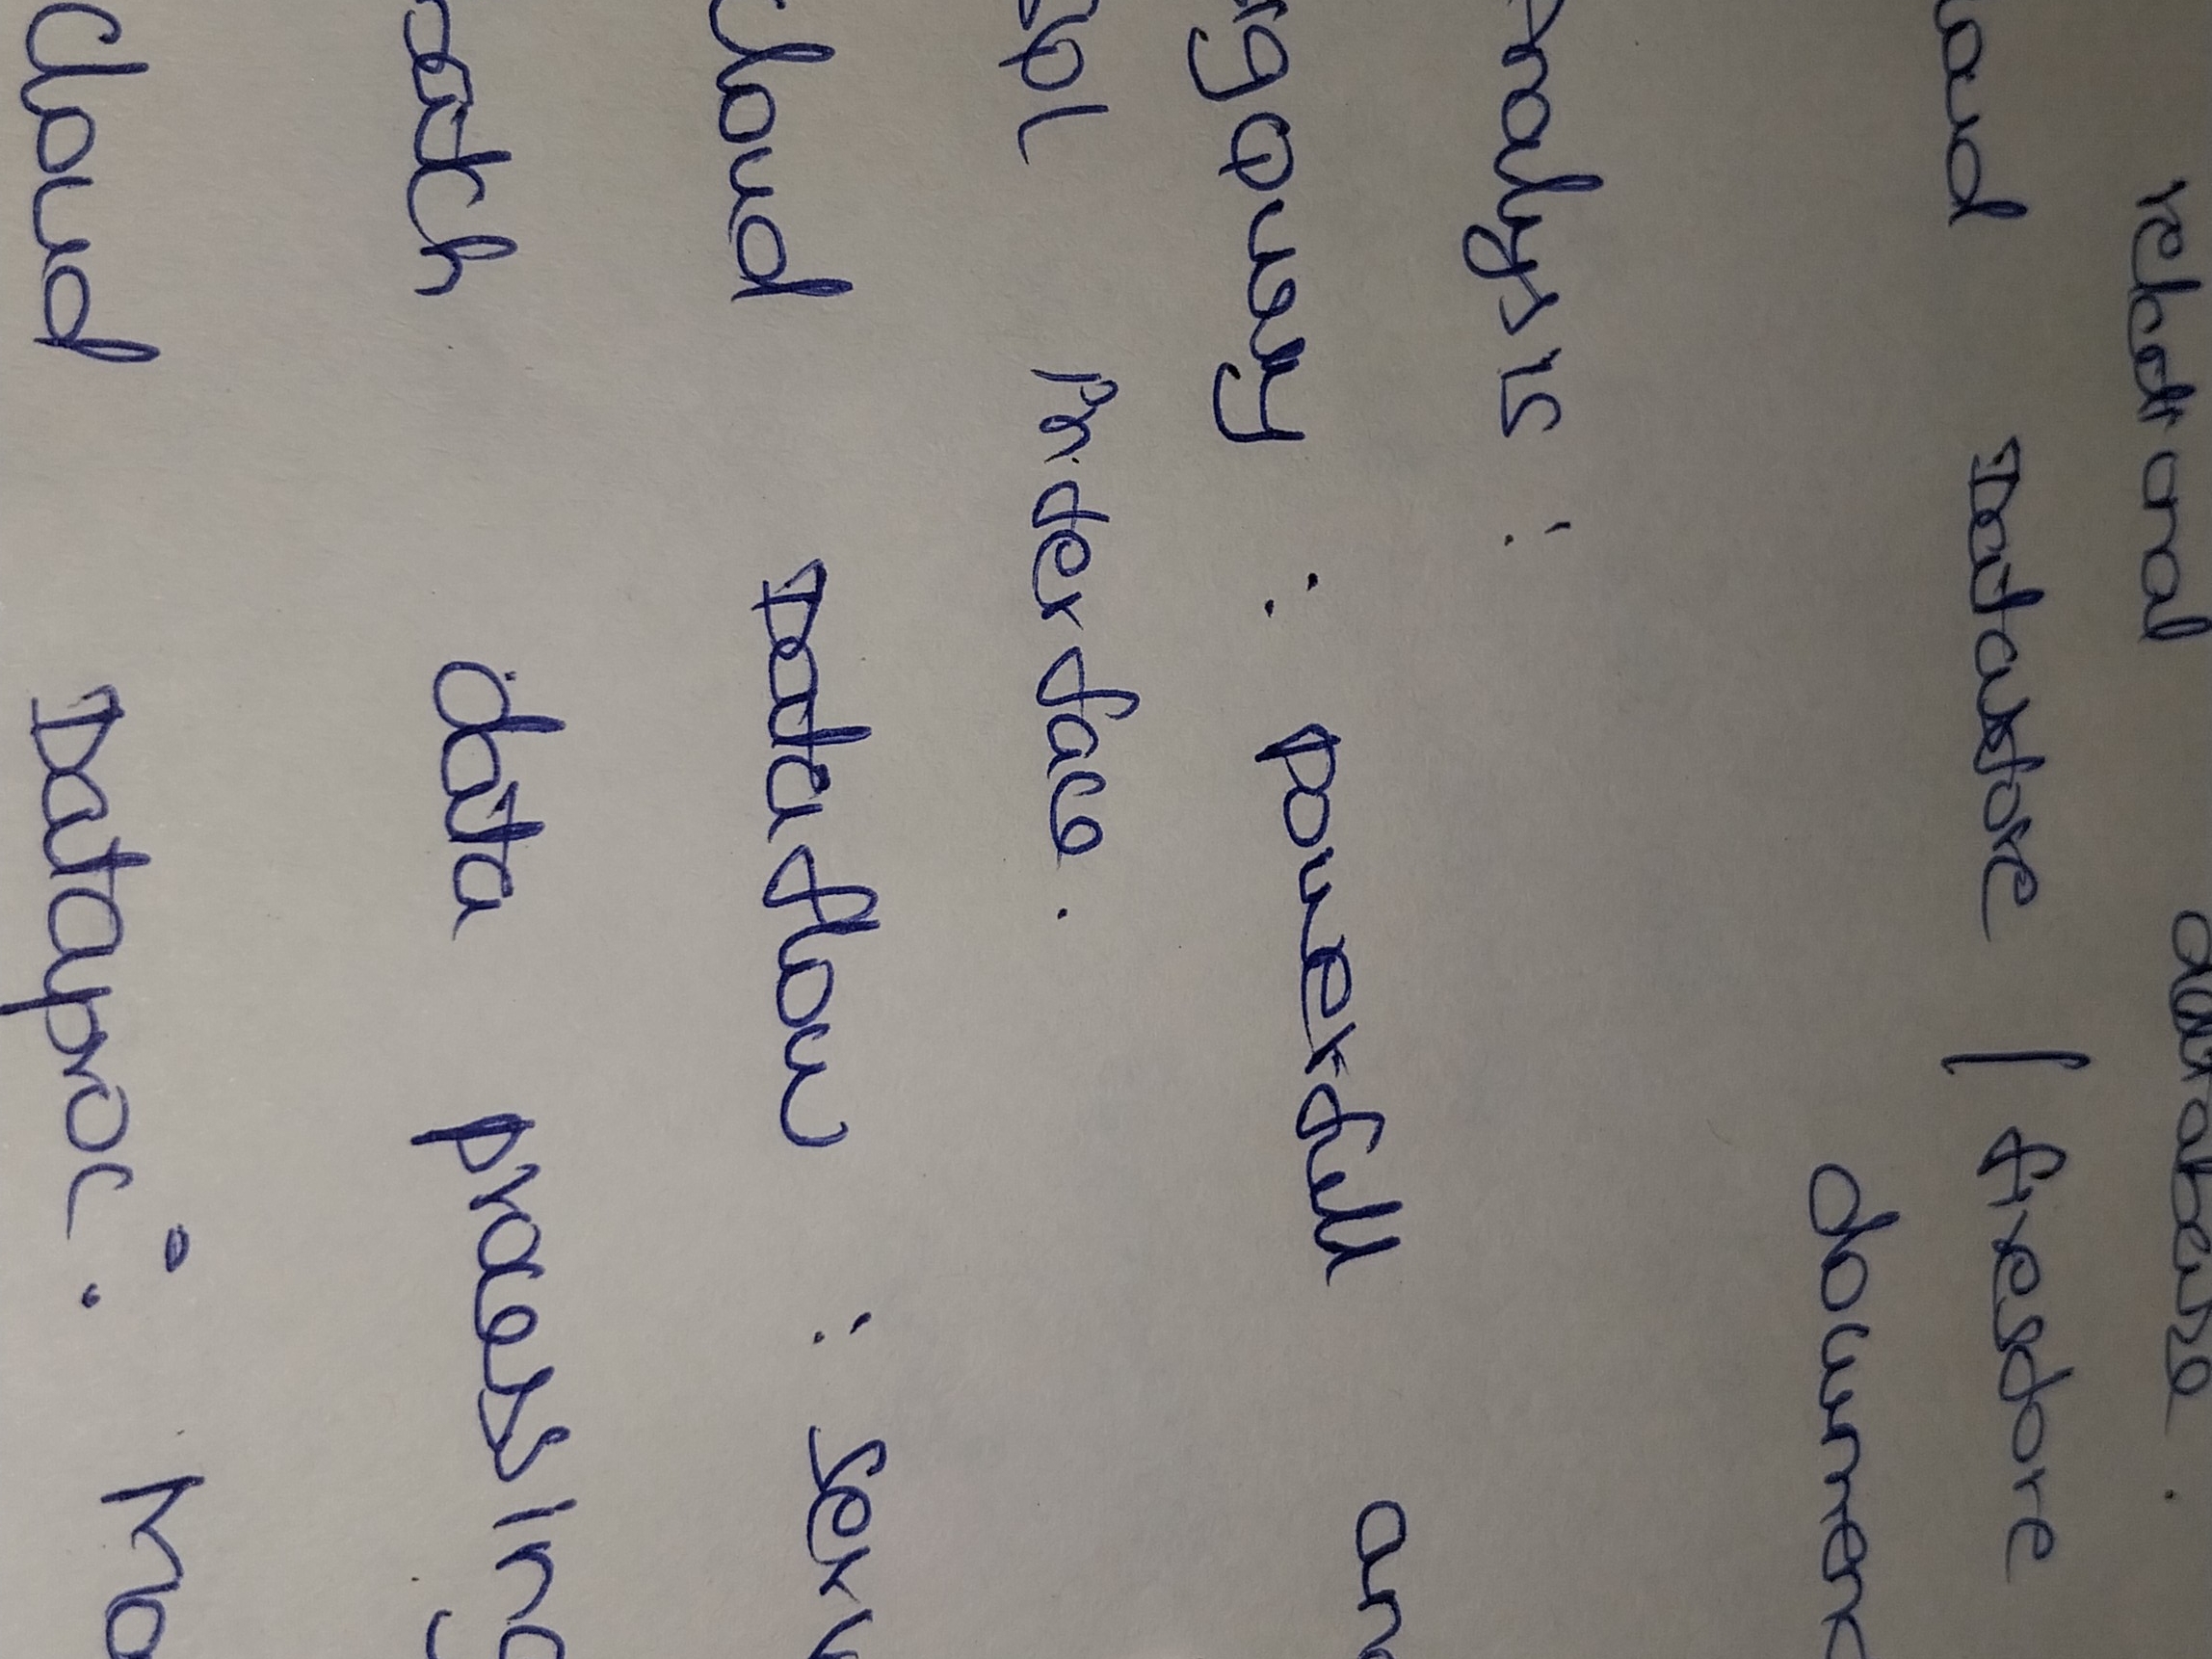 relational database.
oud Datastore / firestore
documen
Analysis :
igQuery : powerful an
SQL interface.
Cloud Dataflow : Serv
atch data processing
Cloud Dataproc : Ma